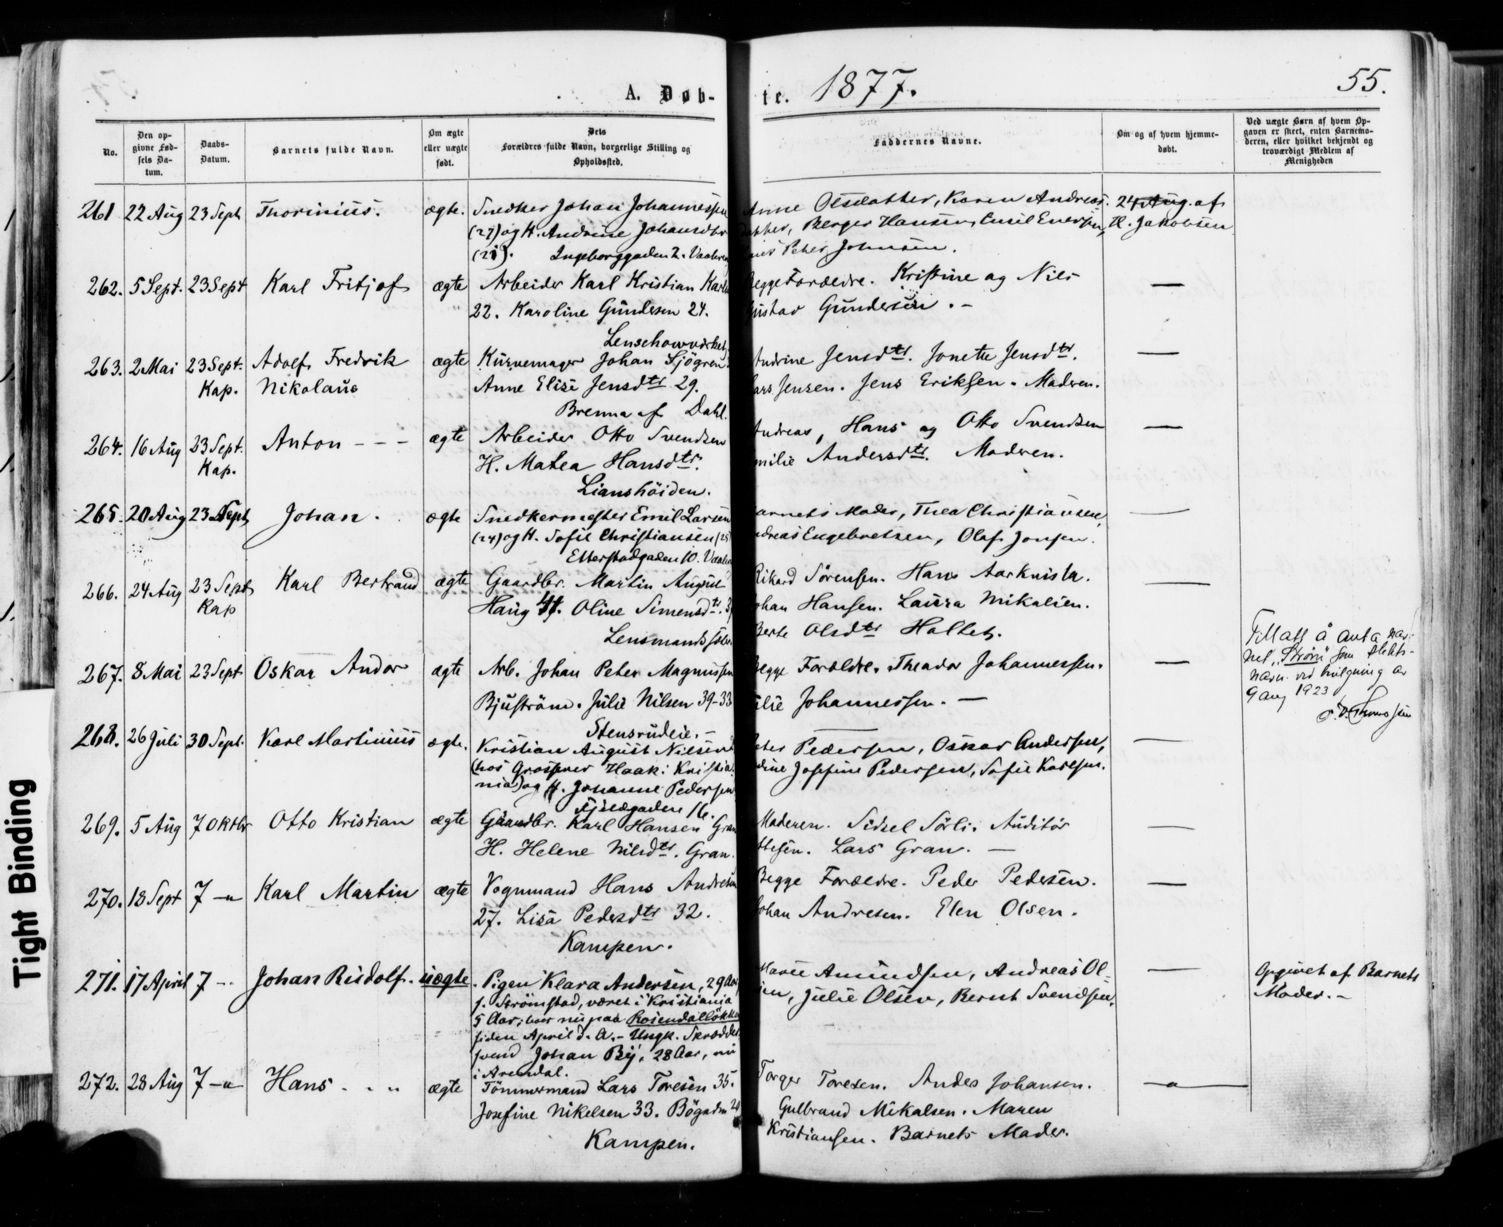 A. Døb-
te. 1877.
55.
No.
Den op-
givne Fød-
sels Da-
tum.
Daabs-
Datum.
Barnets fulde Navn.
Om ægte
eller uægte
født.
Dets
Forældres fulde Navn, borgerlige Stilling og
Opholdssted.
Faddernes Navne.
Om og af hvem hjemme-
døbt.
Ved uægte Børn af hvem Op-
gaven er skeet, enten Barnemo-
deren, eller hvilket bekjendt og
troværdigt Medlem af
Menigheden
261 22 Aug 23 Sept Thorinius. ægte. Snedker Johan Johannessen
(27) og H. Andrine Johansdtr
(21). Ingeborggaden 2. Vaaleren
Anne Olsdatter, Karen Andreas
datter, Berger Hansen, Emil Enersen,
Peter Johnsen.
24 Aug. af
H. Jakobsen
262. 5 Sept. 23 Sept Karl Fritjof ægte Arbeider Karl Kristian Karl
22. Karoline Gundersen 24.
Begge Forældre. Kristine og Nils
Gustav Gundersen. -
263. 2 Mai 23 Sept. Kap. Adolf Fredrik Nikolaus ægte Kurvemager Johan Sjögren
Anne Elise Jensdtr 29.
Brenna af Dahl.
Andrine Jensdtr. Jonette Jensdtr.
Lars Jensen. Jens Eriksen. Moderen.
264. 16 Aug 23 Sept. Kap. Anton - - - ægte Arbeider Otto Svendsen
H. Matea Hansdtr.
Lianshöiden.
Andreas, Hans og Otto Svendsen
Emilie Andersdtr. Moderen.
265. 20 Aug 23 Sept Johan. ægte Snedkermester Emil Larsen
(24) og H. Sofie Christiansen (25)
Etterstadgaden 10. Vaaler
Barnets Moder, Thea Christiansen,
Andreas Engebretsen, Olaf Jonsen.
266. 24 Aug 23 Sept Kap Karl Bertrand ægte Gaardbr. Martin August
Haug 41. Oline Simensdtr.
Rikard Sørensen. Hans
Johan Hansen. Laura Mikalsen.
Berte Olsdtr Holtet.
267. 8 Mai 23 Sept Oskar Andor ægte Arb. Johan Peter Magnussen
Bjuström. Julie Nilsen 39-33
Stensrudeie. -
Begge Forældre. Theador Johannessen.
Julie Johannessen. -
Tillatt å anta nav-
net "Strøm" som slekts-
navn ved bevilgning av
9 aug 1923
268. 26 Juli 30 Sept. Karl Martinius ægte. Kristian August Nielsen
(hos Grosserer Haak i Kristia-
nia) og H. Johanne Pedersen
16.
Peter Pedersen, Oskar Andersen,
Josefine Pedersen, Sofie Karlsen.
269. 5 Aug 7 Oktbr Otto Kristian ægte Gaardbr. Karl Hansen Gran
H. Helene Nilsdtr. Gran.
Moderen. Sidsel Sörli. Auditör
Lars Gran. -
270. 18 Sept 7 -"- Karl Martin ægte Vognmand Hans Andresen
27. Lisa Pedersdtr 32.
Kampen.
Begge Forældre. Peder Pedersen.
Johan Andresen. Elen Olsen.
271. 17 April 7 - Johan Rudolf. uægte. Pigen Klara Andersen, 29 Aar
f. Strömstad, været i Kristiania
5 Aar, boer nu paa Rosendallökken
siden April d. A. - Ungk. Skrædder-
svend Johan By, 28 Aar, nu
i Arendal.
Marie Amundsen, Andreas Ol-
sen, Julie Olsen, Bernt Svendsen.
Opgivet af Barnets
Moder. -
272. 28 Aug 7 -"- Hans - " " ægte Tömmermand Lars Toresen 35.
Josefine Mikelsen 33. Bögaden 24
Kampen.
Torger Toresen. Andes Johansen.
Gulbrand Mikalsen. Maren
Kristiansen. Barnets Moder.
Tight Binding